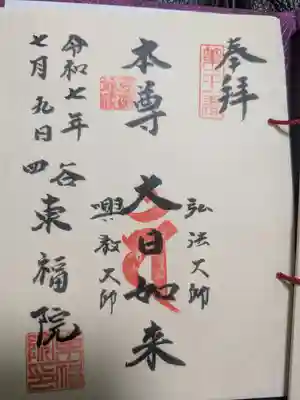 奉拝
弘法大師
本尊 大日如来
興教大師
令和七年
七月九日
四谷 東福院